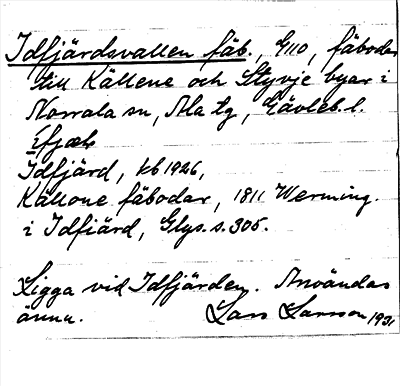 Idfjärdsvallen fäb., G110, fäbodar
till Källene och Styvje byar i
Norrala sn, Ala tg, Gävleb. l.
Idfjärd, kb 1926,
Källene fäbodar, 1811 Werming.
i Idfiärd, Glys. s. 305.
Ligga vid Idfjärden. Användas
ännu. Lars Larsson 1931